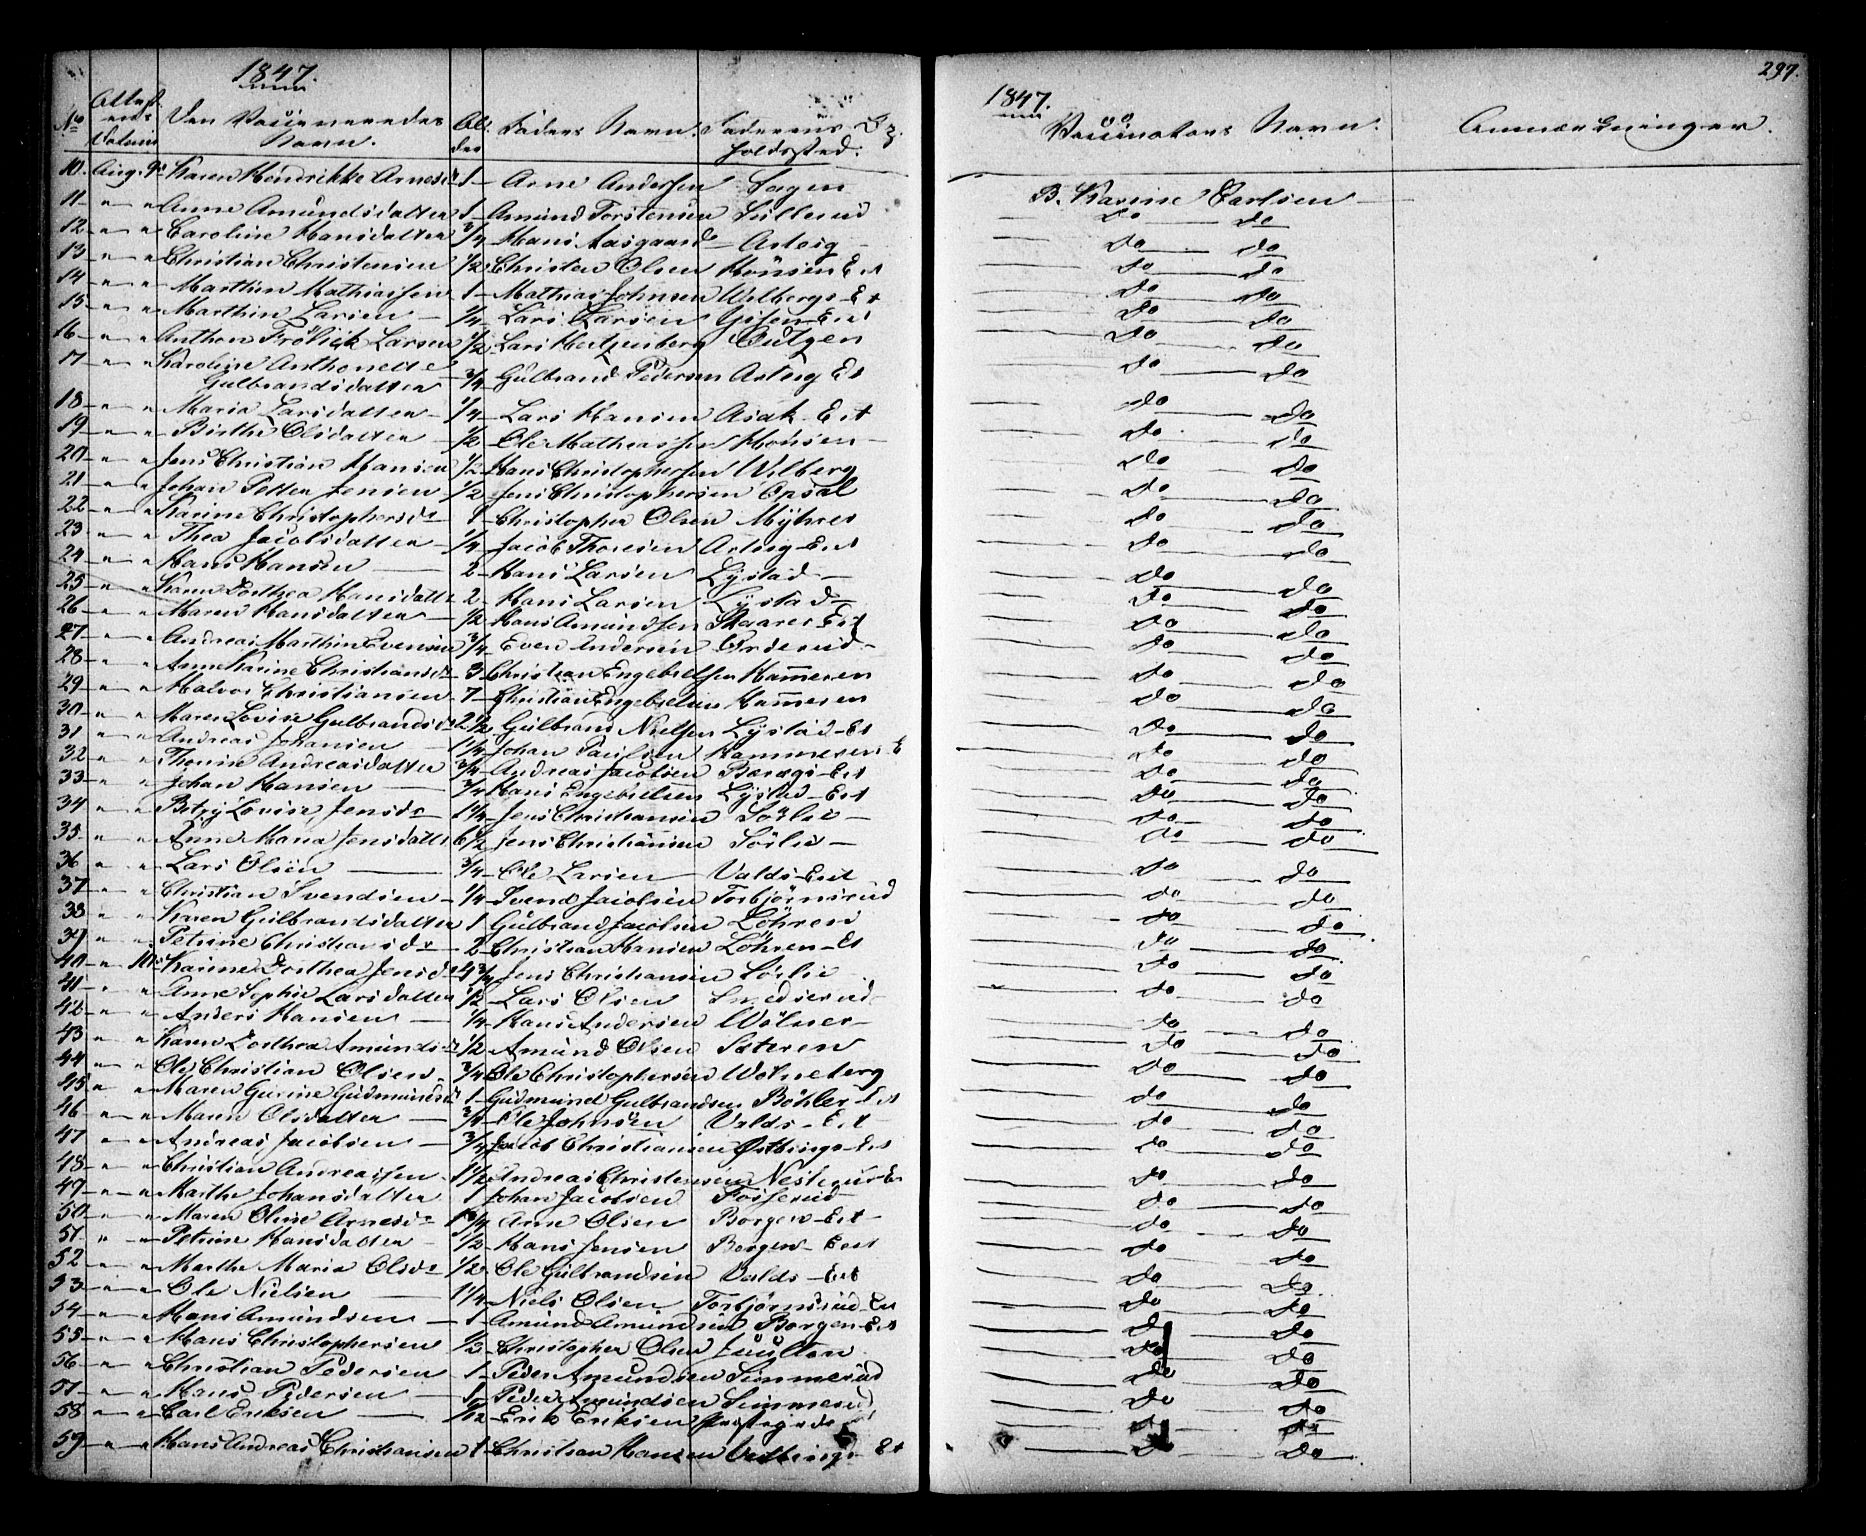 1847.
No Attest. ens Datum Den Vaccineredes Navn. Al. der Faders Navn. Faderens Op holdssted.
10. Aug. 9de Karen Hendrikke Arnesdr 1 Arne Andersen Hagen
11 " " Anne Amundsdatter 1 Amund Torstensen Sullerud
12 " " Caroline Hansdatter 3/4 Hans Aasgaard Asteig
13 " " Christian Christensen 1/2 Christen Olsen Konsen Eit
14 " " Marthin Mathiassen 1 Mathias Johnsen Wilbergs Et
15 " " Marthin Larsen 1/4 Lars Larsen Eiet
16 " " Anthon Frölich Larsen 1/2 Lars Hertzenberg
17 " " Karoline Anthonette Gulbrandsdatter 3/4 Gulbrand Pedersen Asteig Et
18 " " Maria Larsdatter 1/4 Lars Hansen Asak Eiet
19 " " Birthe Olsdatter 1/2 Ole Mathiassen Konsen
20 " " Jens Christian Hansen 1/2 Hans Christophersen Wilberg
21 " " Johan Petter Jensen 1/2 Jens Christophersen Opsal
22 " " Karine Christophersdr 1 Christopher Olsen Myhrer
23 " " Thea Jacobsdatter 1/4 Jacob Thoresen Asteig Eiet
24 " " Hans Hansen 2 Hans Larsen Lystad
25 " " Karen Dorthea Hansdatter 2 Hans Larsen Lystad
26 " " Maren Hansdatter 1/2 Hans Amundsen Skaarer Eit
27 " " Andreas Marthin Evensen 3/4 Even Andersen Orderud
28 " " Anne Karine Christiansdr 3 Christian Engebretsen Hammeren
29 " " Halvor Christiansen 7 Christian Engebretsen Hammeren
30 " " Maren Lovise Gulbrandsdr 2 1/2 Gulbrand Nielsen Lystad Et
31 " " Andreas Johansen 1 1/4 Johan Paulsen Hammeren E
32 " " Thorine Andreasdatter 3/4 Andreas Jacobsen Eiet
33 " " Johan Hansen 3/4 Hans Engebretsen Lystad Eit
34 " " Betzy Lovise Jensdr 1 1/4 Jens Christiansen Sörlie
35 " " Anne Maria Jensdatter 6 1/2 Jens Christiansen Sörlie
36 " " Lars Olsen 3/4 Ole Larsen Valds Eiet
37 " " Christian Svendsen 1/4 Svend Jacobsen Torbjørnsrud
38 " " Karen Gulbrandsdatter 1 Gulbrand Jacobsen Löhren
39 " " Petrine Christiansdr 2 Christian Hansen Löhren Et
40 " 10de Karine Dorthea Jensdr 4 3/4 Jens Christiansen Sörlie
41 " " Anne Sophie Larsdatter 1/2 Lars Olsen Smedsrud
42 " " Anders Hansen 1/4 Hans Andersen Wölner
43 " " Karen Dorthea Amundsdr 1/2 Amund Olsen Sæteren
44 " " Ole Christian Olsen 3/4 Ole Christophersen Wolneberg
45 " " Maren Gurine Gudmundsdr 1 Gudmund Gulbrandsen Böhler Eit
46 " " Maren Olsdatter 3/4 Ole Johnsen Valds Eit
47 " " Andreas Jacobsen 3/4 Jacob Christiansen Østbings Eit
48 " " Christian Andreassen 1 1/2 Andreas Christensen Et
49 " " Marthe Johansdatter 1 Johan Jacobsen Fosserud
50 " " Maren Oline Arnesdr 1 3/4 Arne Olsen Borgen Eit
51 " " Petrine Hansdatter 1/2 Hans Jensen Borgen Eiet
52 " " Marthe Maria Olsdr 1/2 Ole Gulbrandsen Valds Eit
53 " " Ole Nielsen 1 1/4 Niels Olsen Torbjørnsrud Eit
54 " " Hans Amundsen 1 Amund Amundsen Borgen Eit
55 " " Hans Christophersen 1/2 Christopher Olsen Juulton
56 " " Christian Pedersen 1 Peder Amundsen Simmerud
57 " " Hans Pedersen Peder Amundsen Simmerud
58 " " Carl Eriksen 1/12 Erik Eriksen
59 " " Hans Andreas Christiansen 1 Christian Hansen Et
297.
1847.
Vaccinators Navn. Anmærkninger.
B. Karine Carlsen
do do
do do
do do
do do
do do
do do
do do
do do
do do
do do
do do
do do
do do
do do
do do
do do
do do
do do
do do
do do
do do
do do
do do
do do
do do
do do
do do
do do
do do
do do
do do
do do
do do
do do
do do
do do
do do
do do
do do
do do
do do
do do
do do
do do
do do
do do
do do
do do
do do